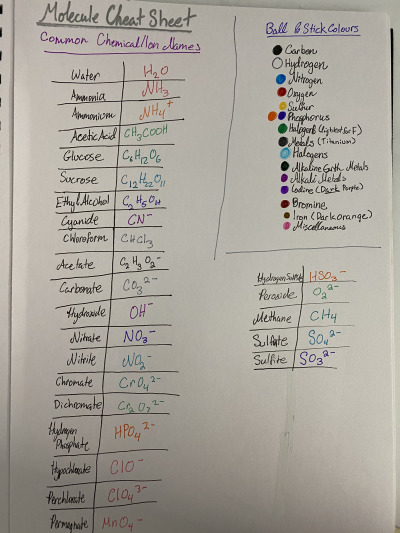 Molecule Cheat Sheet
Common Chemical/Ion Names
Water H₂O
Ammonia NH₃
Ammonium NH₄⁺
Acetic Acid CH₃COOH
Glucose C₆H₁₂O₆
Sucrose C₁₂H₂₂O₁₁
Ethyl Alcohol C₂H₅OH
Cyanide CN⁻
Chloroform CHCl₃
Acetate C₂H₃O₂⁻
Carbonate CO₃²⁻
Hydroxide OH⁻
Nitrate NO₃⁻
Nitrite NO₂⁻
Chromate CrO₄²⁻
Dichromate Cr₂O₇²⁻
Hydrogen
Phosphate HPO₄²⁻
Hypochlorate ClO⁻
Perchlorate ClO₄³⁻
MnO₄⁻
Ball & Stick Colours
Carbon
Hydrogen
Nitrogen
Oxygen
Sulfur
Phosphorus
Halogens (Lightest for F)
Metals (Titanium)
Halogens
Alkaline Earth Metals
Alkali Metals
Iodine (Dark Purple)
Bromine
Iron (Dark orange)
Miscellaneous
Hydrogen Sulfite HSO₃⁻
Peroxide O₂²⁻
Methane CH₄
Sulfate SO₄²⁻
Sulfite SO₃²⁻